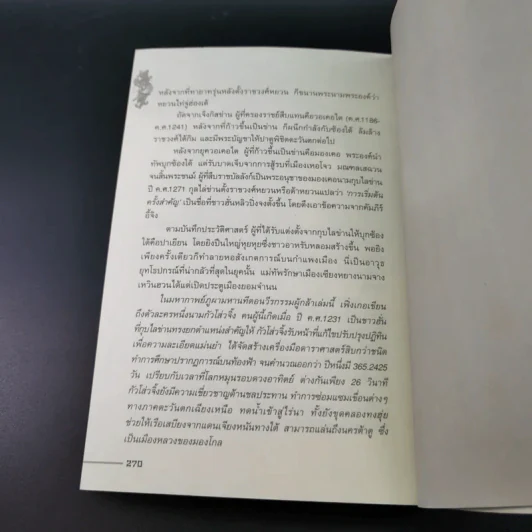 หลังจากที่ทายาทรุ่นหลังตั้งราชวงศ์หยวน ก็ขนานพระนามพระองค์ว่า
หยวนไท่จู่ฮ่องเต้
ถัดจากเจ็งกิสข่าน ผู้ที่ครองราชย์สืบแทนคือวอเคอไต (ค.ศ.1186-
ค.ศ.1241) หลังจากที่ก้าวขึ้นเป็นข่าน ก็ผนึกกำลังกับซ้องใต้ ล้มล้าง
ราชวงศ์ได้กิม และมีพระบัญชาให้ปาตูพิชิตตะวันตกต่อไป
หลังจากยุควอเคอไต ผู้ที่ก้าวขึ้นเป็นข่านคือมองเคอ พระองค์นำ
ทัพบุกซ้องใต้ แต่รับบาดเจ็บจากการสู้รบที่เมืองเหอโจว มณฑลเสฉวน
จนสิ้นพระชนม์ ผู้ที่สืบราชบัลลังก์เป็นพระอนุชาของมองเคอนามกุบไลข่าน
ปี ค.ศ.1271 กุบไลข่านตั้งราชวงศ์หยวนหรือต้าหยวนแปลว่า 'การเริ่มต้น
ครั้งสำคัญ' เป็นชื่อที่ชาวฮั่นหลิวปิ่งจงตั้งขึ้น โดยดึงเอาข้อความจากคัมภีร์
อี้จิง
ตามบันทึกประวัติศาสตร์ ผู้ที่ได้รับแต่งตั้งจากกุบไลข่านให้บุกซ้อง
ใต้คือปาเยียน โดยยิงปืนใหญ่หุยหุยซึ่งชาวอาหรับหลอมสร้างขึ้น พอยิง
เพียงครั้งเดียวก็ทำลายหอสังเกตการณ์บนกำแพงเมือง นี่เป็นอาวุธ
ยุทโธปกรณ์ที่น่ากลัวที่สุดในยุคนั้น แม่ทัพรักษาเมืองเซียงหยางนามจาง
เหวินฮวนได้แต่เปิดประตูเมืองยอมจำนน
ในมหากาพย์ภูผามหานทีตอนวีรกรรมผู้กล้าเล่มนี้ เฟิ่งเกอเขียน
ถึงตัวละครหนึ่งนามกัวโส่วจิ้ง คนผู้นี้เกิดเมื่อ ปี ค.ศ.1231 เป็นชาวฮั่น
ที่กุบไลข่านทรงยกตำแหน่งสำคัญให้ กัวโส่วจิ้งรับหน้าที่แก้ไขปรับปรุงปฏิทิน
เพื่อความละเอียดแม่นยำ ได้จัดสร้างเครื่องมือดาราศาสตร์สิบกว่าชนิด
ทำการศึกษาปรากฏการณ์บนท้องฟ้า จนคำนวณออกว่า ปีหนึ่งมี 365.2425
วัน เปรียบกับเวลาที่โลกหมุนรอบดวงอาทิตย์ ต่างกันเพียง 26 วินาที
กัวโส่วจิ้งยังมีความเชี่ยวชาญด้านชลประทาน ทำการซ่อมแซมเขื่อนต่างๆ
ทางภาคตะวันตกเฉียงเหนือ ทดน้ำเข้าสู่ไร่นา ทั้งยังขุดคลองทงฮุ่ย
ช่วยให้เรือเสบียงจากแดนเจียงหนันทางใต้ สามารถแล่นถึงนครต้าตู ซึ่ง
เป็นเมืองหลวงของมองโกล
270